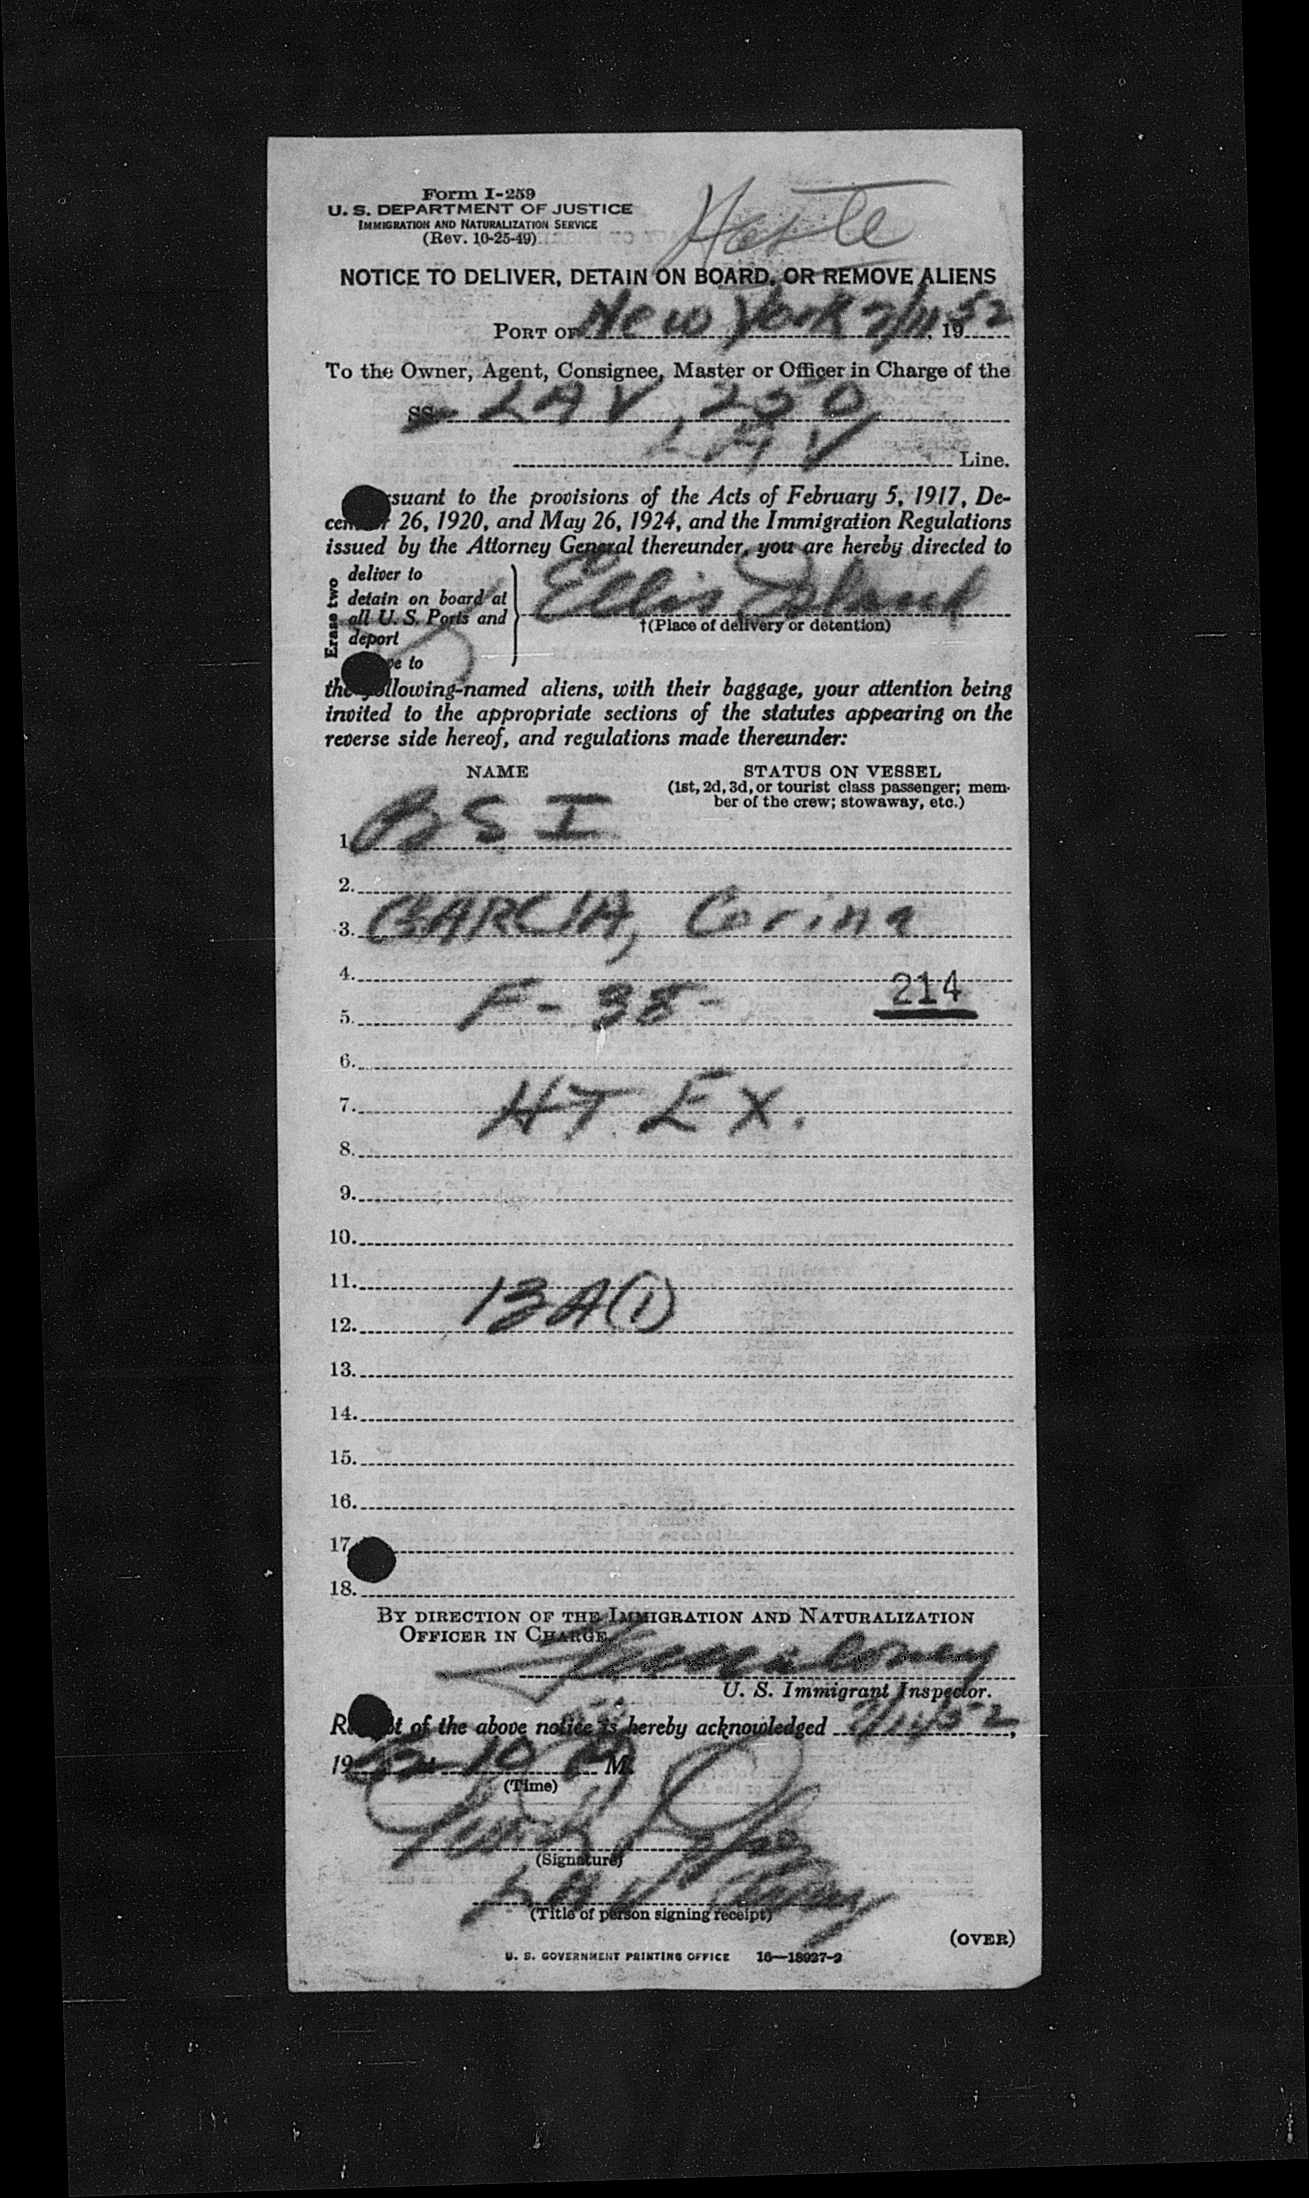 Form I-259
U. S. DEPARTMENT OF JUSTICE
IMMIGRATION AND NATURALIZATION SERVICE
(Rev. 10-25-49)
NOTICE TO DELIVER, DETAIN ON BOARD, OR REMOVE ALIENS
PORT OF New York 2/11, 1952
To the Owner, Agent, Consignee, Master or Officer in Charge of the
SS LAV 250
LAV Line.
suant to the provisions of the Acts of February 5, 1917, De-
cem r 26, 1920, and May 26, 1924, and the Immigration Regulations
issued by the Attorney General thereunder, you are hereby directed to
Erase two
deliver to
detain on board at
all U. S. Ports and
deport
e to
Ellis Island
†(Place of delivery or detention)
the following-named aliens, with their baggage, your attention being
invited to the appropriate sections of the statutes appearing on the
reverse side hereof, and regulations made thereunder:
NAME STATUS ON VESSEL
(1st, 2d, 3d, or tourist class passenger; mem-
ber of the crew; stowaway, etc.)
1. BSI
2.
3. GARCIA, Corina
4. 214
5. F-38-
6.
7. HT EX.
8.
9.
10.
11.
12. 13A(1)
13.
14.
15.
16.
17.
18.
BY DIRECTION OF THE IMMIGRATION AND NATURALIZATION
OFFICER IN CHARGE.
U. S. Immigrant Inspector.
R t of the above notice is hereby acknowledged 2/11/52,
19 M.
(Time)
(Signature)
LAV
(Title of person signing receipt)
(OVER)
U. S. GOVERNMENT PRINTING OFFICE 16—18927-2